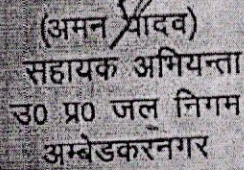 (अमन यादव)
सहायक अभियन्ता
उ0 प्र0 जल निगम
अम्बेडकरनगर